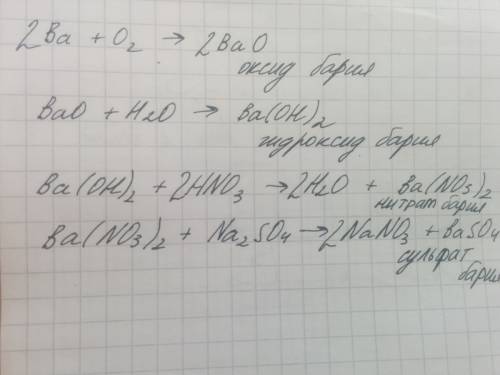 2Ba + O₂ → 2BaO
оксид бария
BaO + H₂O → Ba(OH)₂
гидроксид бария
Ba(OH)₂ + 2HNO₃ → 2H₂O + Ba(NO₃)₂
нитрат бария
Ba(NO₃)₂ + Na₂SO₄ → 2NaNO₃ + BaSO₄
сульфат
бария